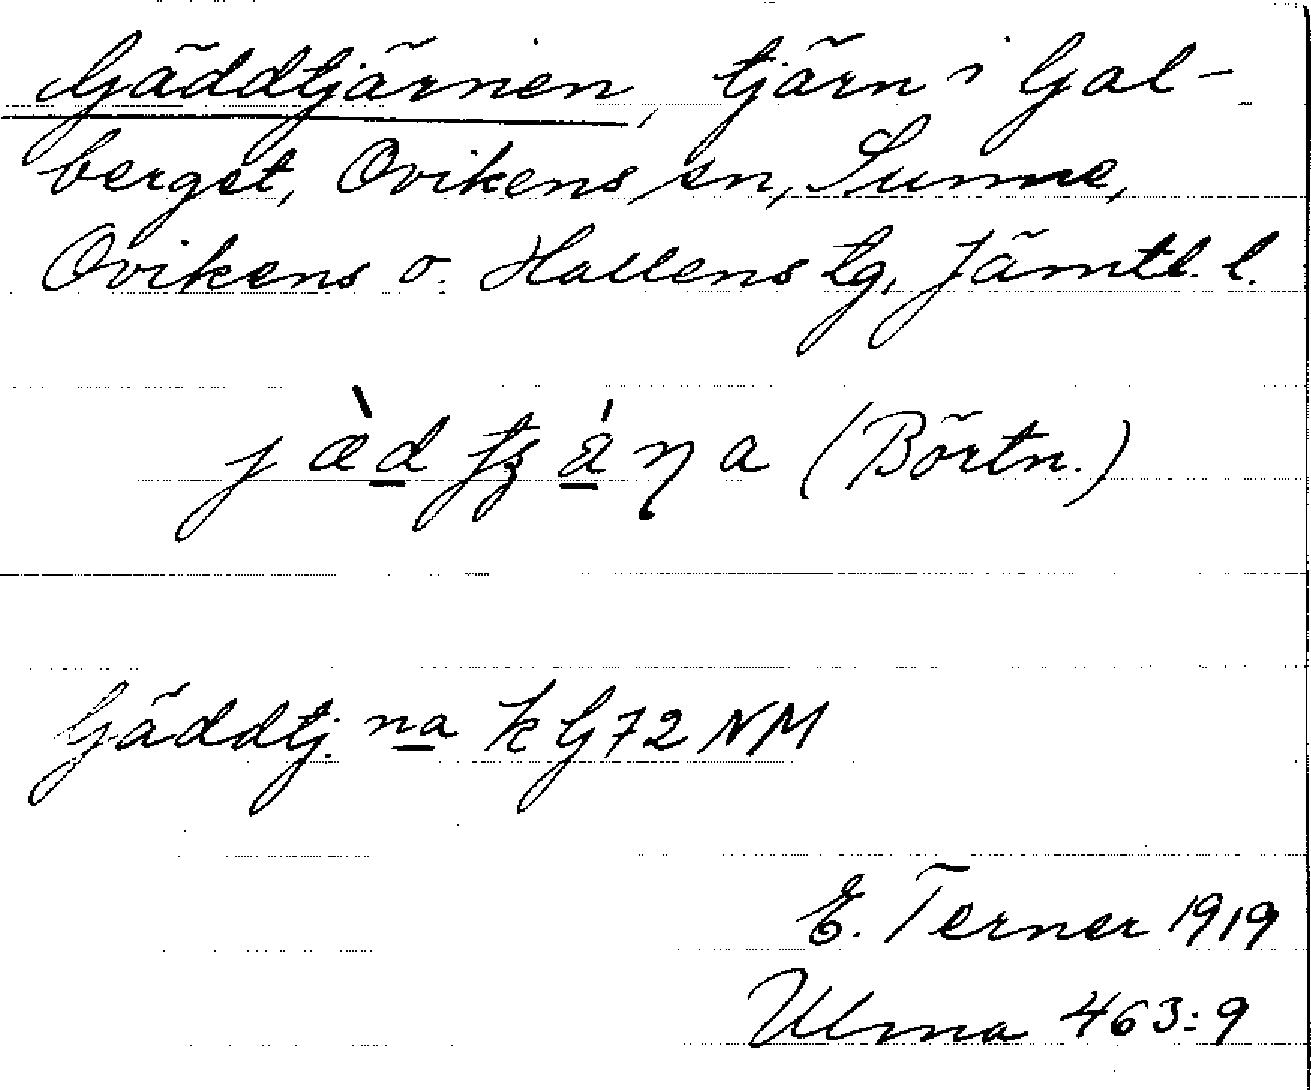 Gäddtjärnen, tjärn i Gal-
berget, Ovikens sn, Sunne,
Ovikens o. Hallens tg, Jämtl. l.
(Börtn.)
Gäddtj. na k G 72 NM
E. Terner 1919
Ulma 463:9